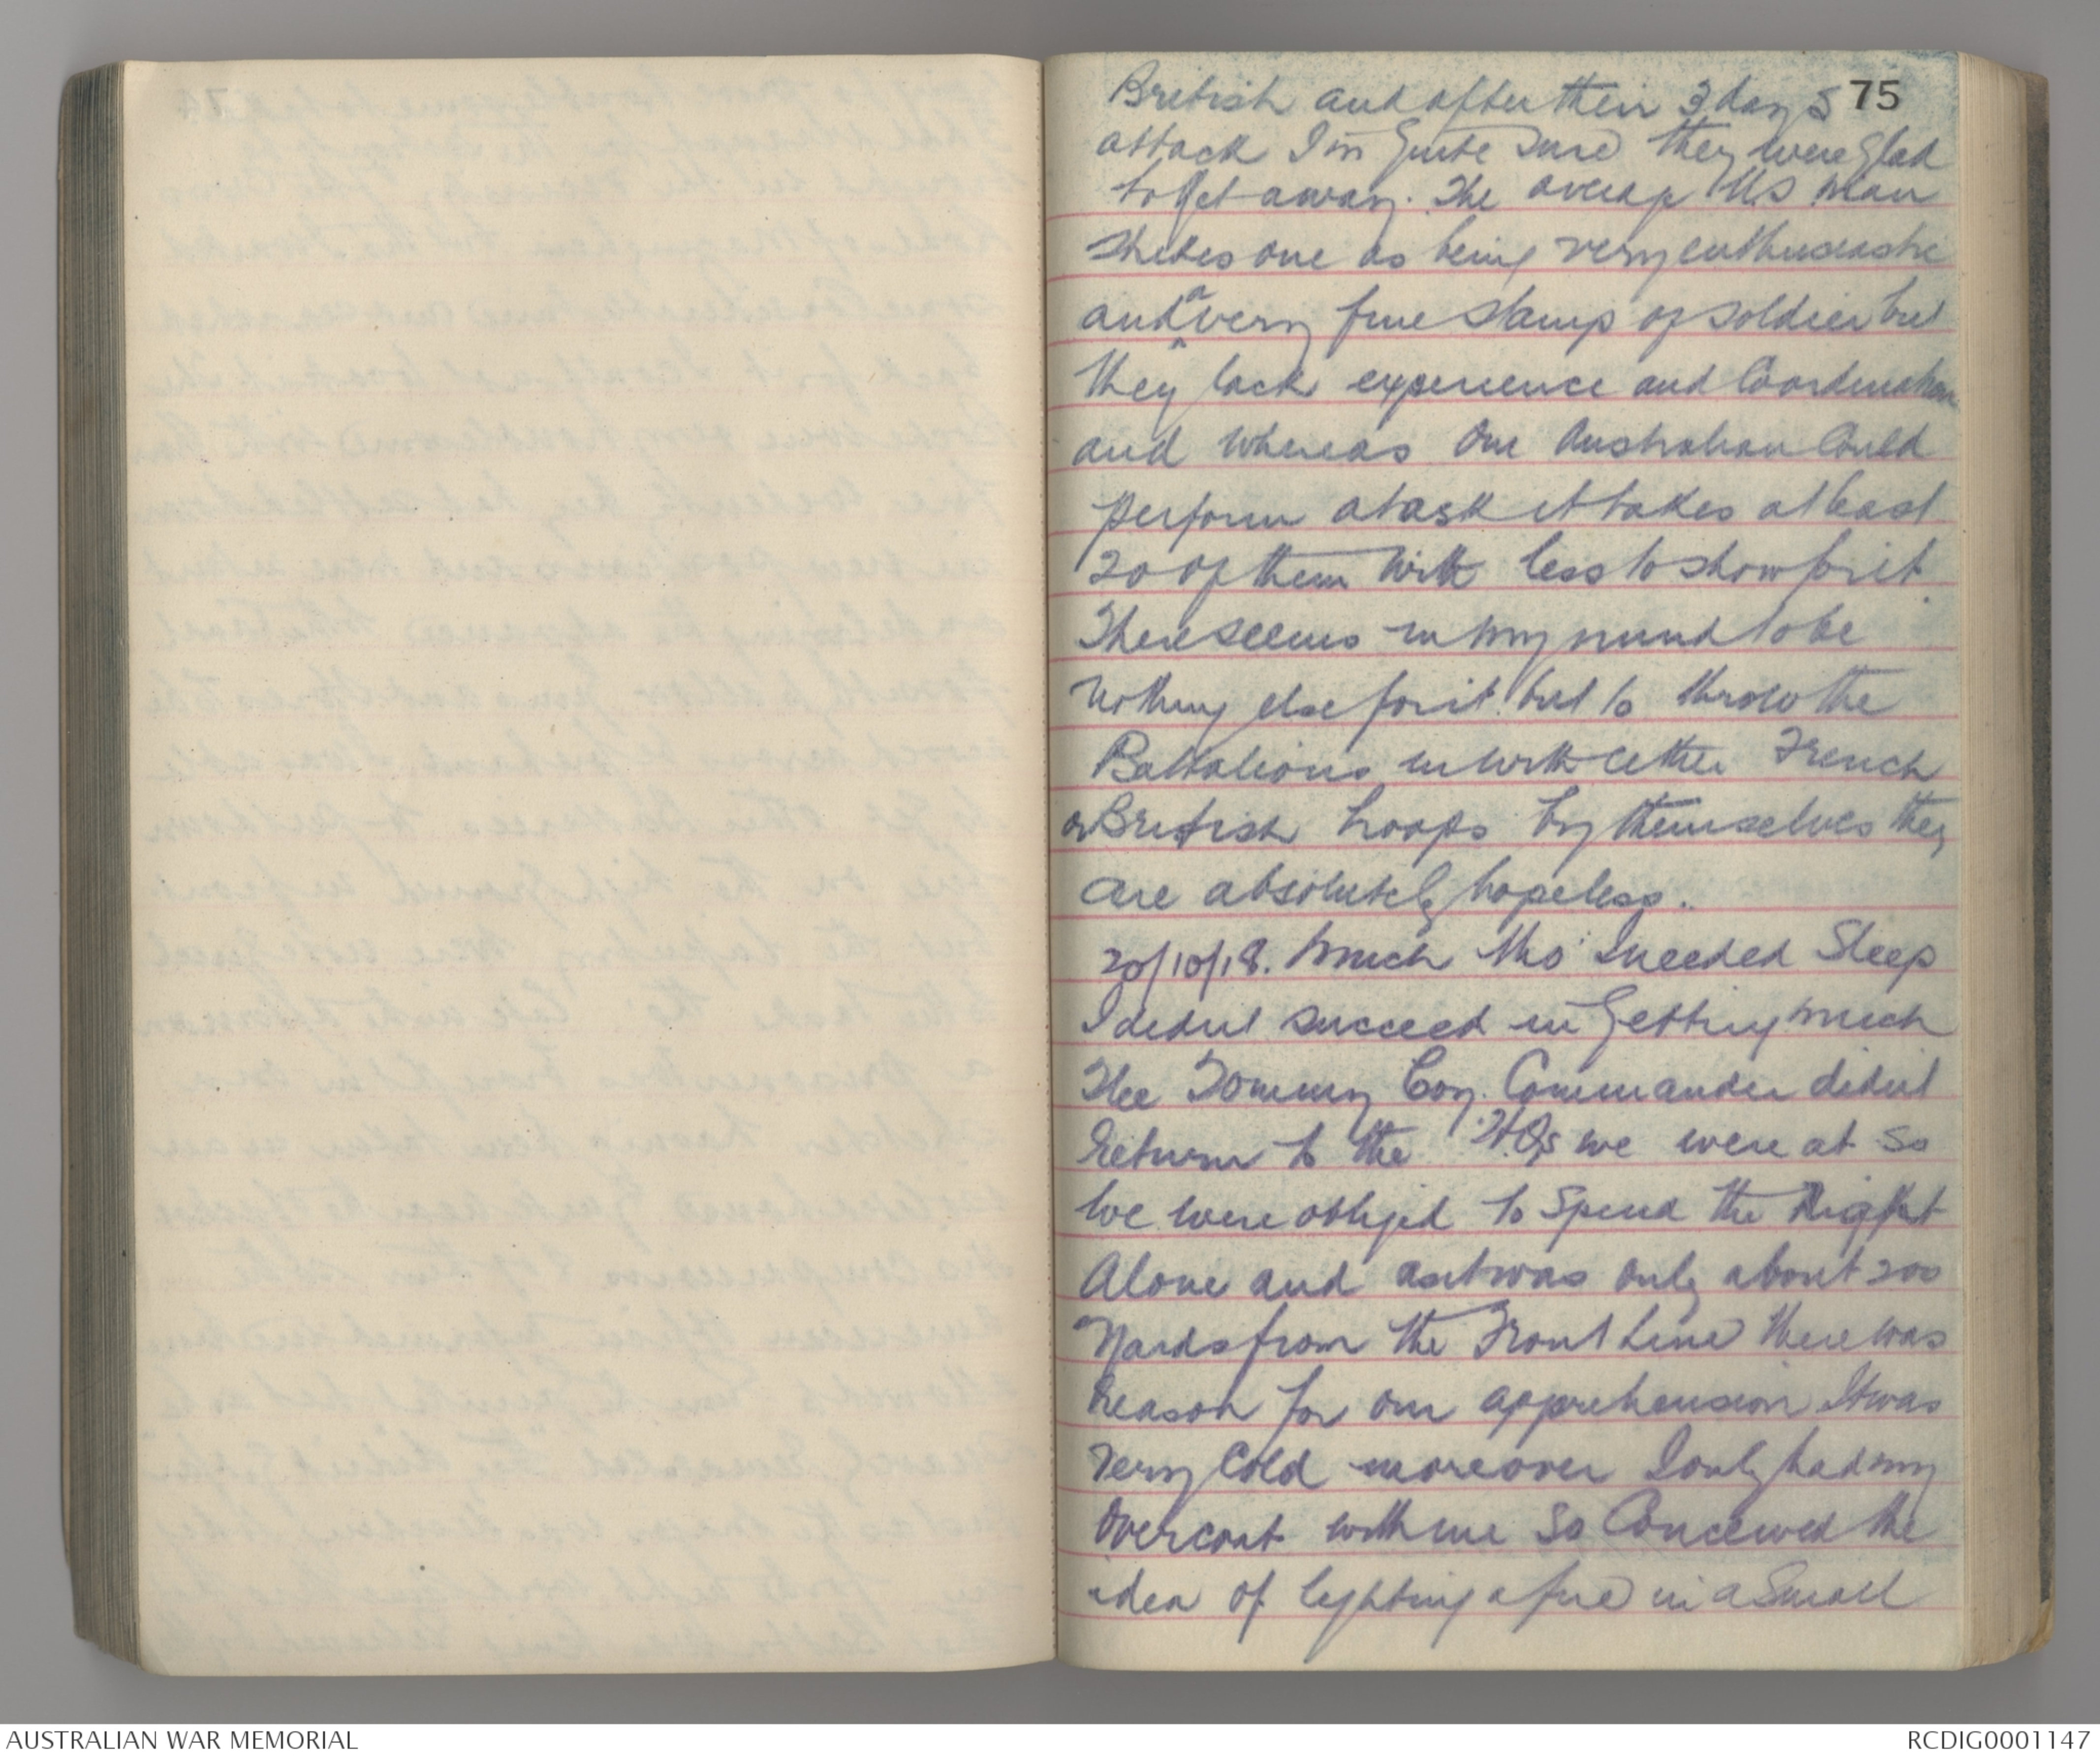 75
British and after their 3 days
attack I'm Quite Sure they were Glad
to Get away. The averag U.S man
Strikes one as being very enthusiastic
and a very fine stamp of soldier but
they lack experience and Coordination
and whereas One Australian Could
perform a task it takes at least
20 of them with less to show for it.
There seems in my mind to be
nothing else for it but to throw the
Battalions in with either French
or British troops by themselves they
are absolutely hopeless.
20/10/18. Much tho' I needed Sleep
I didnt succeed in Getting much
The Tommy Coy. Commander didnt
Return to the H.Qs we were at so
We were obliged to Spend the Night
Alone and as it was only about 200
Yards from the Front Line there was
Reason for our apprehension It was
Very Cold moreover I only had my
Overcoat with me So Conceived the
idea of lighting a fire in a Small
AUSTRALIAN WAR MEMORIAL
RCDIG0001147